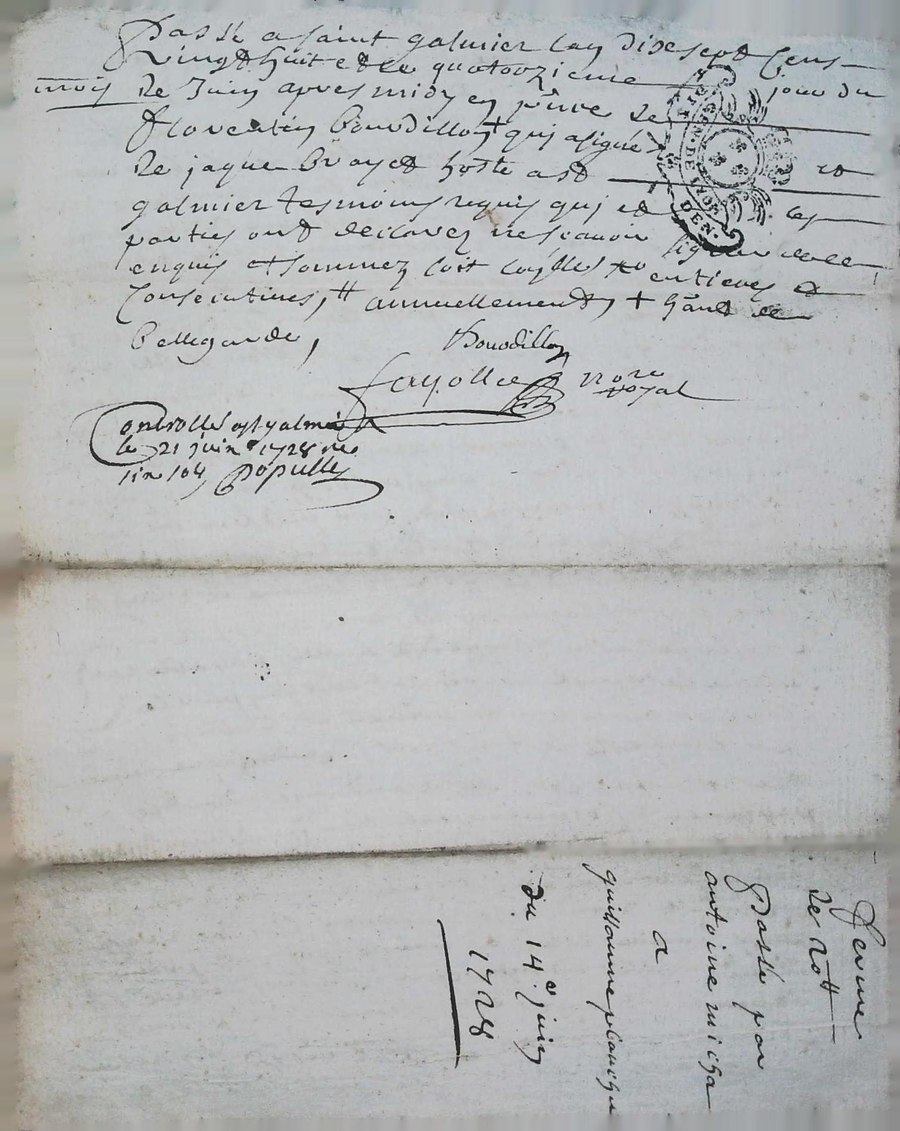 Passé a saint galmier l'an dix sept cens
vingt huit et le quatorzieme jour du
mois de juin apres midy en p̃nce de
florentin Bourdillon + qui a signé
de jaque Broyet hoste a st
galmier tesmoins requis qui et les
parties ont declarez ne scavoir signer de ce
enquis et sommez soit entieres et
consecutives, annuellement, + de
bellegarde,
Bourdillon
fayolle nore
royal
Controllé a st galmier
le 21 juin 1728
Populle
GEN. DE
DEN.
ferme
de
passé par
antoine micha
a
guillaume planche
du 14e juin
1728